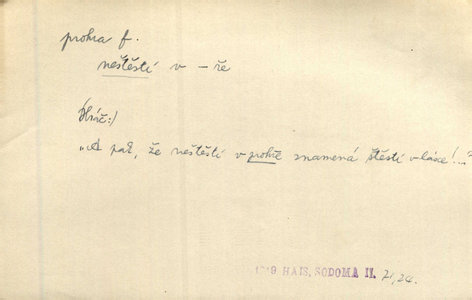 prohra f.
neštěstí v -ře
(Hráč:)
„A pak, že neštěstí v prohře znamená štěstí v lásce!..."
1929 HAIS, SODOMA II. 71, 24.